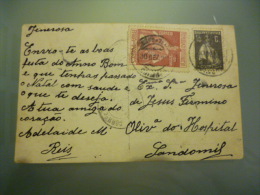 Generosa
Envio-te as boas
festa do Anno Bom
e que tenhas passado
o Natal com saude é
o que te deseja.
A tua amiga do
coração.
Adelaide M
Reis
Ex. Sr. Generosa
de Jesus Firmino
Oliv. do Hospital
Sandomil